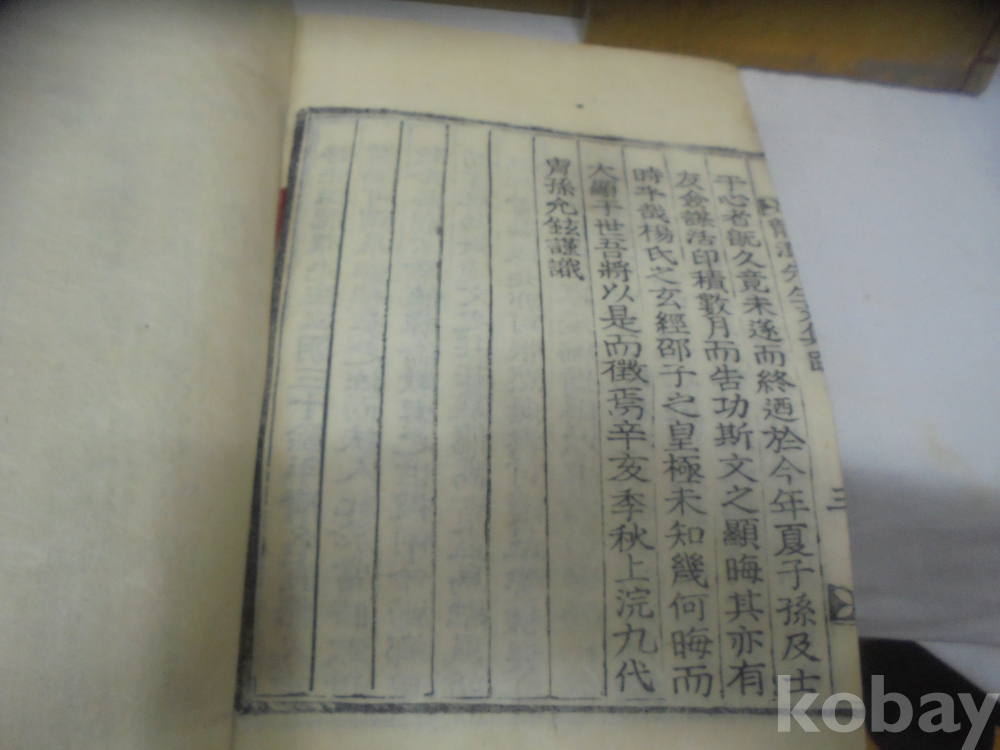 先生文集跋
三
于心者旣久竟未遂而終迺於今年夏子孫及士
友僉謀活印積數月而告功斯文之顯晦其亦有
時乎哉楊氏之玄經邵子之皇極未知幾何晦而
大顯于世吾將以是而徵焉辛亥季秋上浣九代
胄孫允鉉謹識
kobay